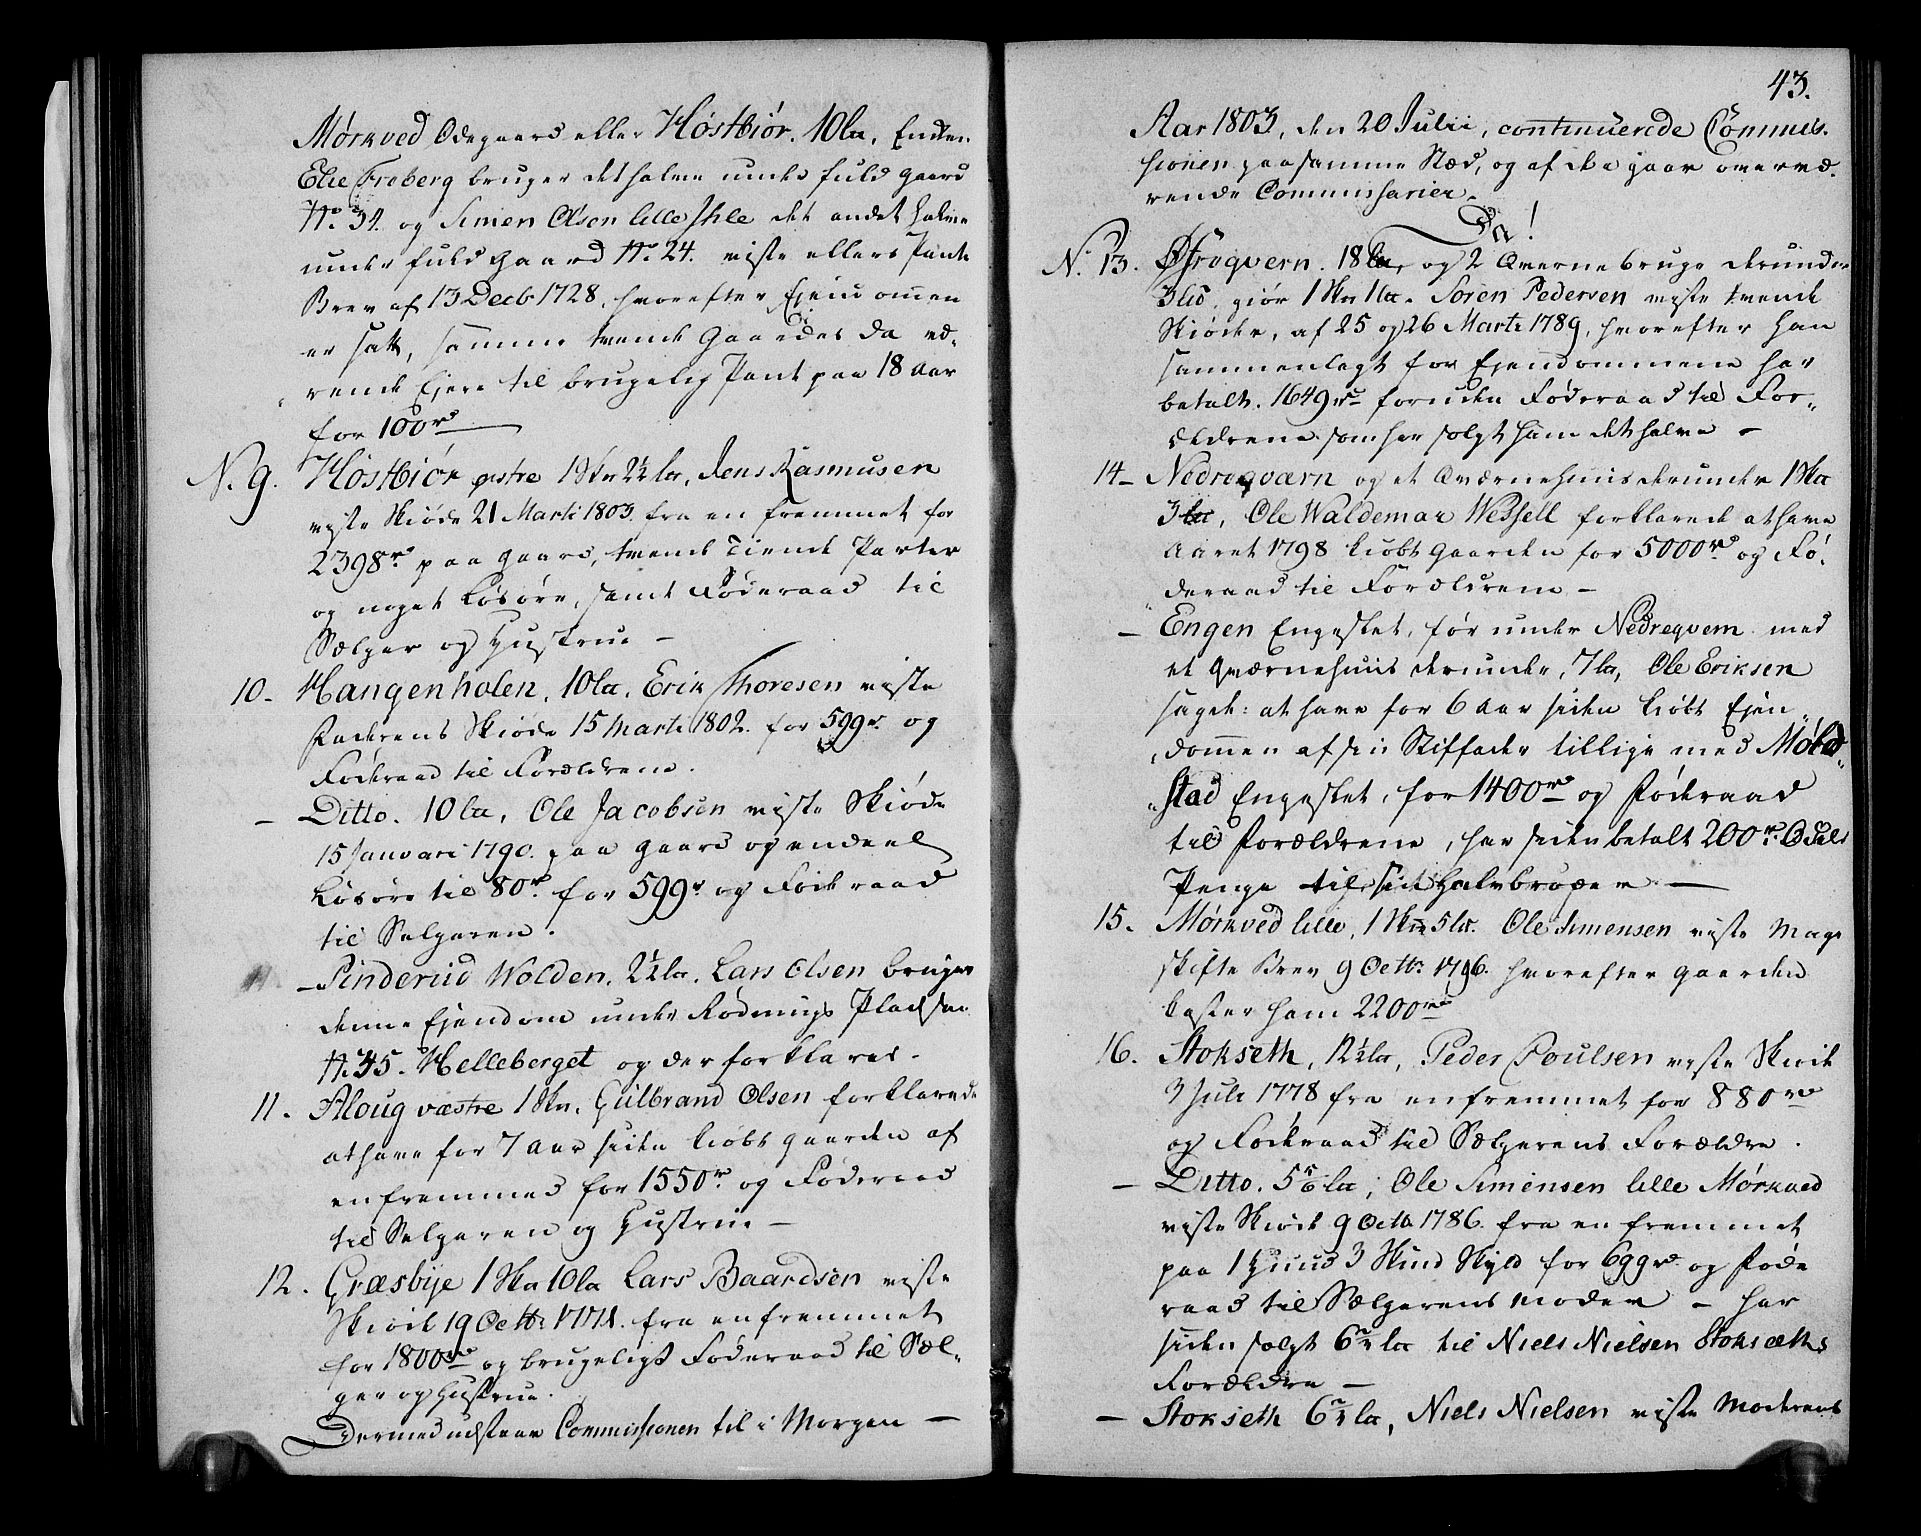 Mørkved Ødegaard eller Høstbiør. 10 la, Enken
Elie Froberg bruger det halve under fuld Gaard
No. 34. og Simen Olsen lille Ihle det andet halve
under fuld Gaard No. 24. viste ellers Pante
Brev af 13 Decb 1728, hvorefter Ejendommen
er satt, samme tvende Gaardes da væ-
rende Ejere til brugelig Pant paa 18 Aar
for 100 rd
N. 9. Høstbiør østre 1 Skn 2½ la, Jens Rasmusen
viste Skiøde 21 Marti 1803. fra en fremmet for
2398 r. paa Gaard, tvende Tiende Parter
og noget Løsøre, samt Føderaad til
Sælger og Hustrue –
10. Hangenholen, 10 la, Erik Thoresen viste
Faderens Skiøde 15 Marti 1802. for 599 r. og
Føderaad til Forældrene.
– Ditto. 10 la, Ole Jacobsen viste Skiøde
15 Januari 1790. paa Gaard og endeel
Løsøre til 80 r. for 599 r og Føderaad
til Selgeren.
– Sinderud Wolden, 2½ la, Lars Olsen bruger
denne Ejendom under Rødnings Pladsen
No. 45. Helleberget og der forklaret.
11. Aloug væstre 1 Skn, Gulbrand Olsen forklarede
at have for 7 Aar siden kiøbt Gaarden af
en fremmed for 1550 r. og Føderaad
til Selgeren og Hustrue –
12. Græsbye 1 Skn 10 la Lars Baardsen viste
Skiøde 19 Octb: 1771. fra en fremmet
for 1800 rd og brugeligt Føderaad til Sæl-
ger og Hustrue.
Dermed udstaar Commissionen til i Morgen –
43.
Aar 1803, den 20 Julii, continuerede Commis-
sionen paa samme Stæd, og af de i gaar overvæ-
rende Commissarier.
Da!
N. 13. Øfreqvern. 18 la, og 2 Qvernebruge derunder
3 la, giør 1 Skn 1 la. Søren Pedersen viste tvende
Skiøder, af 25 og 26 Marti 1789, hvorefter han
sammenlagt for Ejendommene har
betalt. 1649 rd foruden Føderaad til For-
ældrene som har solgt ham det halve –
14 – Nedreqværn og et Qværnehuus derunder 1 Skn
3 la, Ole Waldemar Wessell forklarede at have
Aaret 1798 kiøbt Gaarden for 5000 rd og Fø-
deraad til Forældrene –
– Engen Engeslet, før under Nedreqvern med
et Qværnehuus derunder, 7 la, Ole Eriksen
sagde: at have for 6 Aar siden kiøbt Ejen-
dommen af sin Stiffader tillige med Mølb-
stad Engeslet, for 1400 rd og Føderaad
til Forældrene, har siden betalt 200 r.
Penge til sit Halvbroder –
15. Mørkved lille, 1 Skn 5 la. Ole Simensen viste Mage
skifte Brev 9 Octb: 1796. hvorefter Gaarden
koster ham 2200 rd
16. Stokseth, 12½ la, Peder Poulsen viste Skiøde
3 Juli 1778 fra en fremmet for 880 rd
og Føderaad til Sælgerens Forældre.
– Ditto. 5 la, Ole Simensen lille Mørkved
viste Skiøde 9 Octb 1786. fra en fremmet
paa 1 Huud 3 Skind Skyld for 699 rd. og Føde
raad til Sælgerens Moder – har
siden solgt 6¼ la til Niels Nielsen Stoksæths
Forældre –
– Stokseth 6¼ la, Niels Nielsen viste Moderens